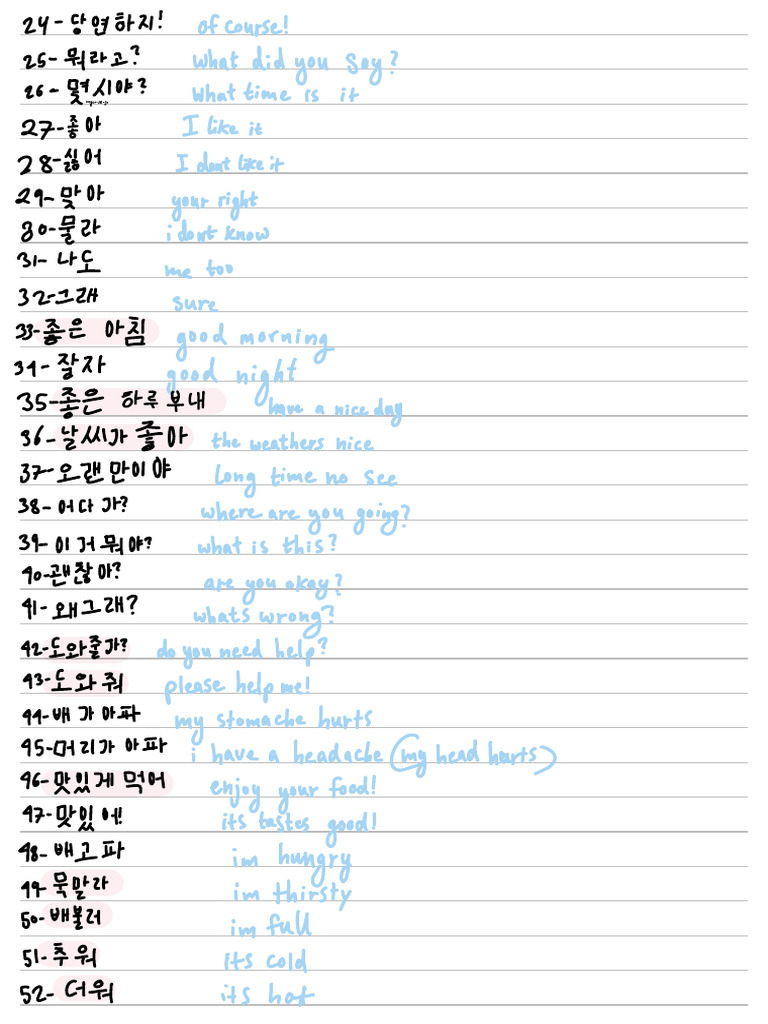 24-당연하지! of course!
25- 뭐라고? What did you say?
26- 몇시야? What time is it
27-좋아 I like it
28-싫어 I dont like it
29-맞아 your right
30-몰라 i dont know
31- 나도 me too
32-그래 sure
33-좋은 아침 good morning
34- 잘자 good night
35-좋은 하루 부내 have a nice day
36-날씨가 좋아 the weathers nice
37-오랜만이야 Long time no see
38-어다 가? where are you going?
39-이거 뭐야? what is this?
40-괜찮아? are you okay?
41-왜그래? whats wrong?
42-도와줄가? do you need help?
43-도와줘 please help me!
44-배가아파 my stomache hurts
45-머리가 아파 i have a headache (my head hurts)
46-맛있게 먹어 enjoy your food!
47-맛있어! its tastes good!
48-배고파 im hungry
49-묵말라 im thirsty
50-배불러 im full
51-추워 its cold
52-더워 its hot